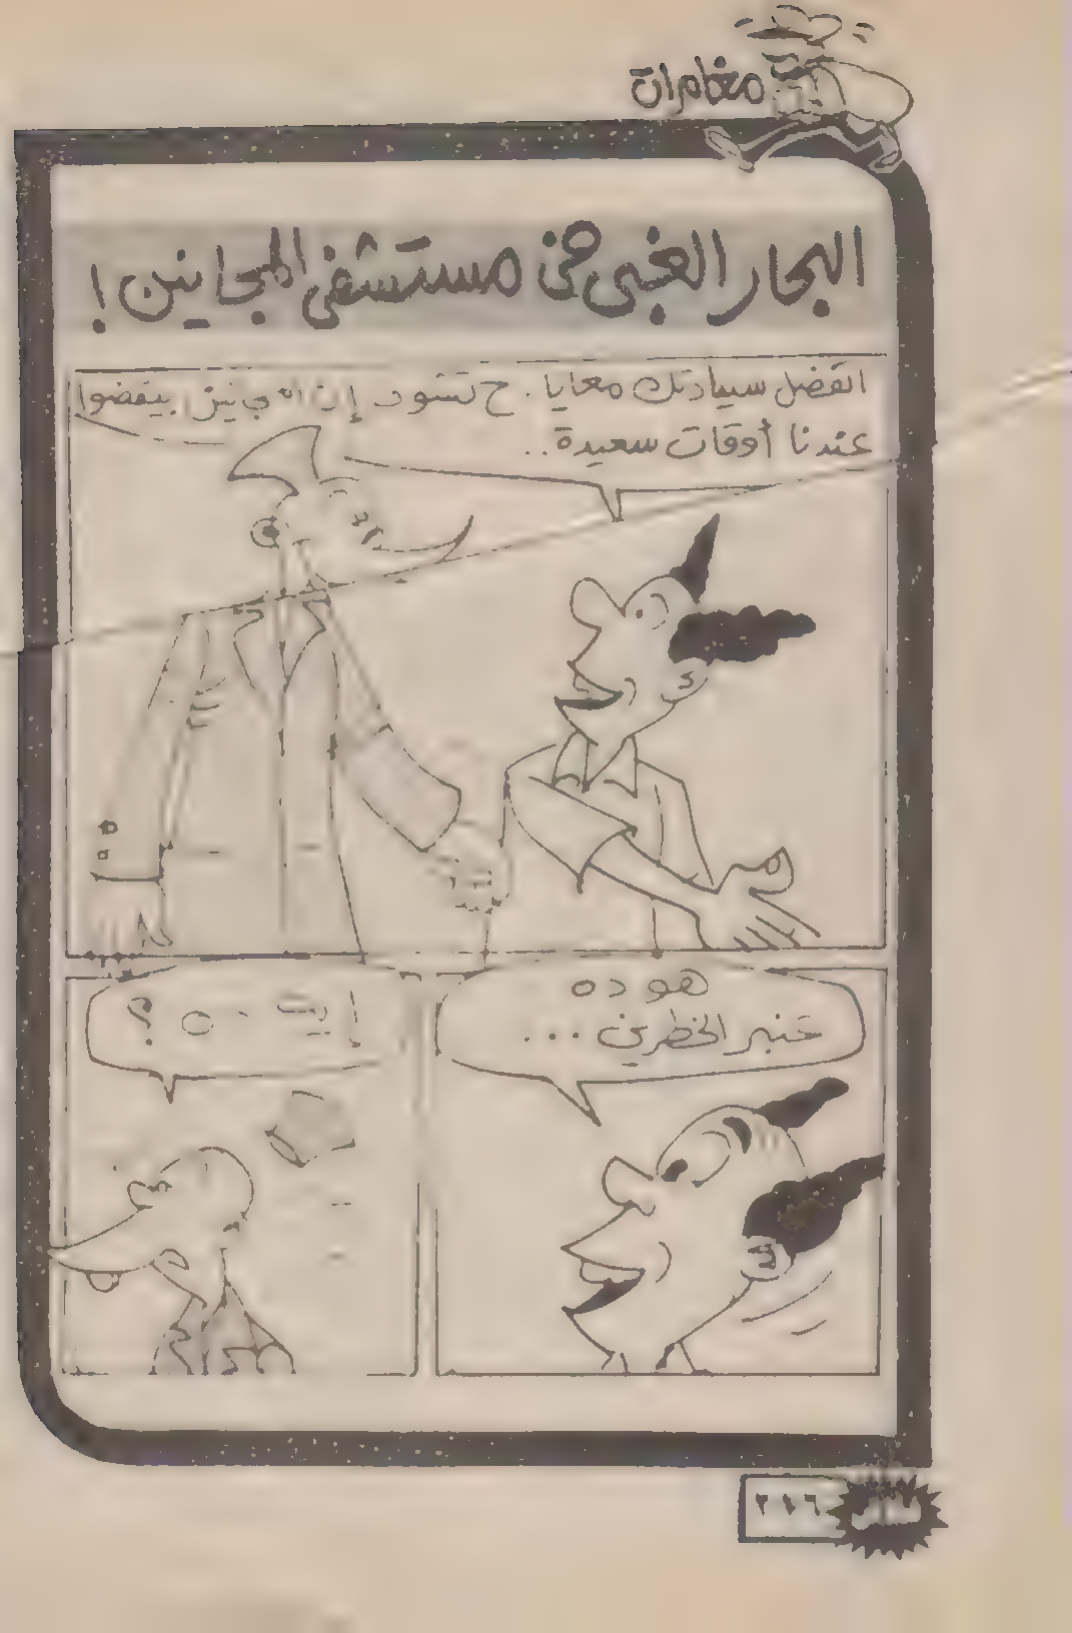 مغامرات
البحار الغبى فى مستشفى المجانين !
اتفضل سيادتك معايا . ح تشوف إن المجانين بيقضوا
عندنا أوقات سعيدة ..
هو ده
عنبر الخطرين ...
؟
٢١٦